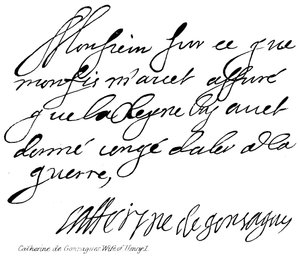 Monsieur sur ce que
mon fils m'avoet assuré
que la Reyne luy avoet
donné congé daler a la
guerre,
Catterine de gonsague
Catherine de Gonsagues Wife of